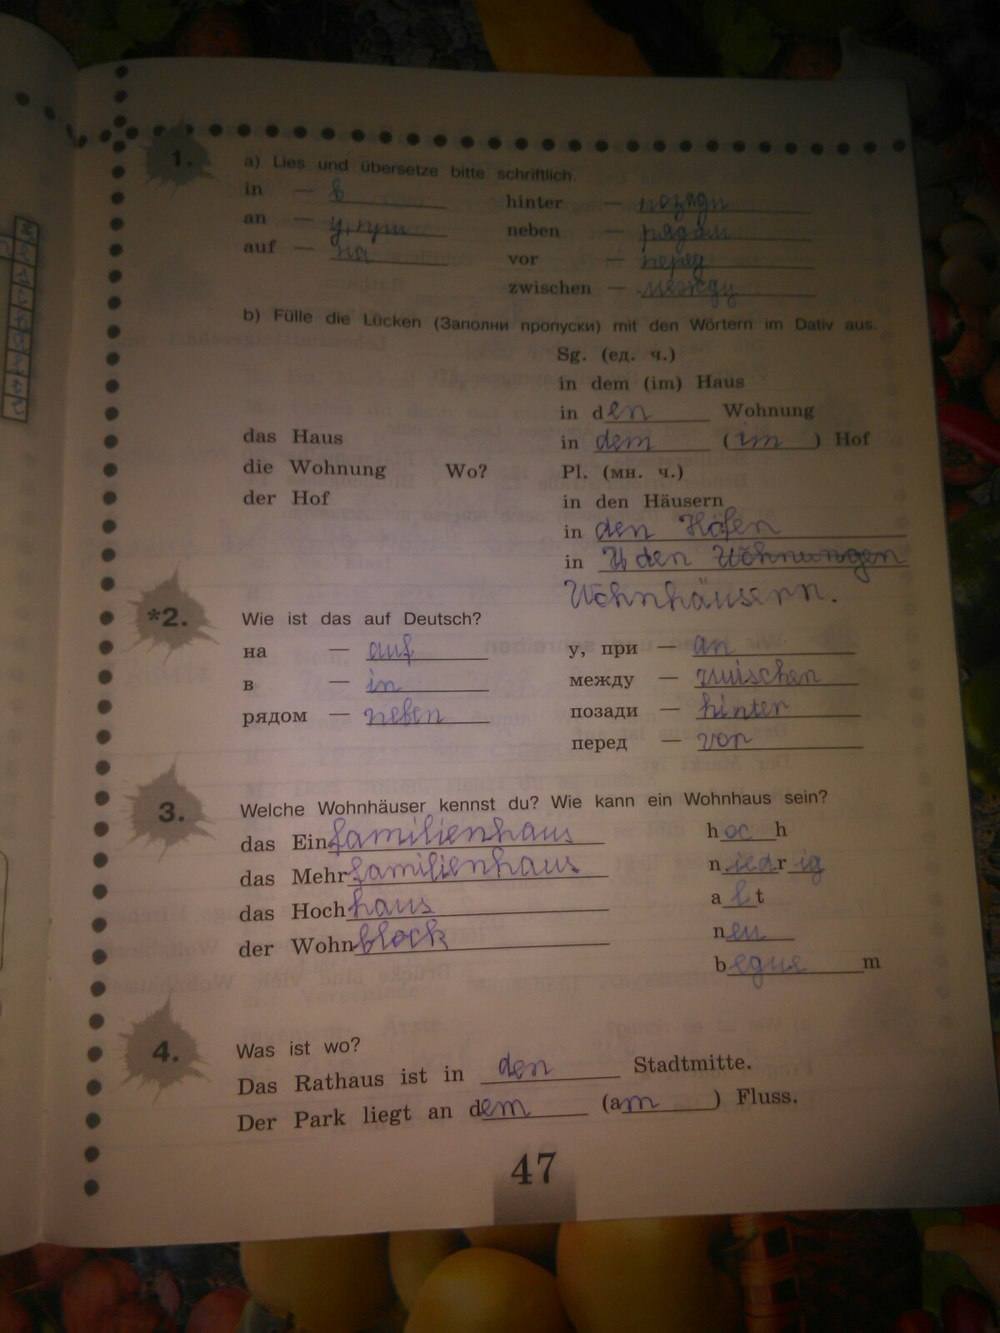 1.
a) Lies und übersetze bitte schriftlich.
in — в
hinter — позади
an — у, при
neben — рядом
auf — на
vor — перед
zwischen — между
b) Fülle die Lücken (Заполни пропуски) mit den Wörtern im Dativ aus.
Sg. (ед. ч.)
in dem (im) Haus
in den Wohnung
das Haus
in dem (im) Hof
die Wohnung Wo?
Pl. (мн. ч.)
der Hof
in den Häusern
in den Höfen
in den Wohnungen
Wohnhäusern.
*2.
Wie ist das auf Deutsch?
на — auf
у, при — an
в — in
между — zwischen
рядом — neben
позади — hinter
перед — vor
3.
Welche Wohnhäuser kennst du? Wie kann ein Wohnhaus sein?
das Einfamilienhaus
hoch
das Mehrfamilienhaus
niedrig
das Hochhaus
alt
der Wohnblock
neu
bequem
4.
Was ist wo?
Das Rathaus ist in den Stadtmitte.
Der Park liegt an dem (am) Fluss.
47